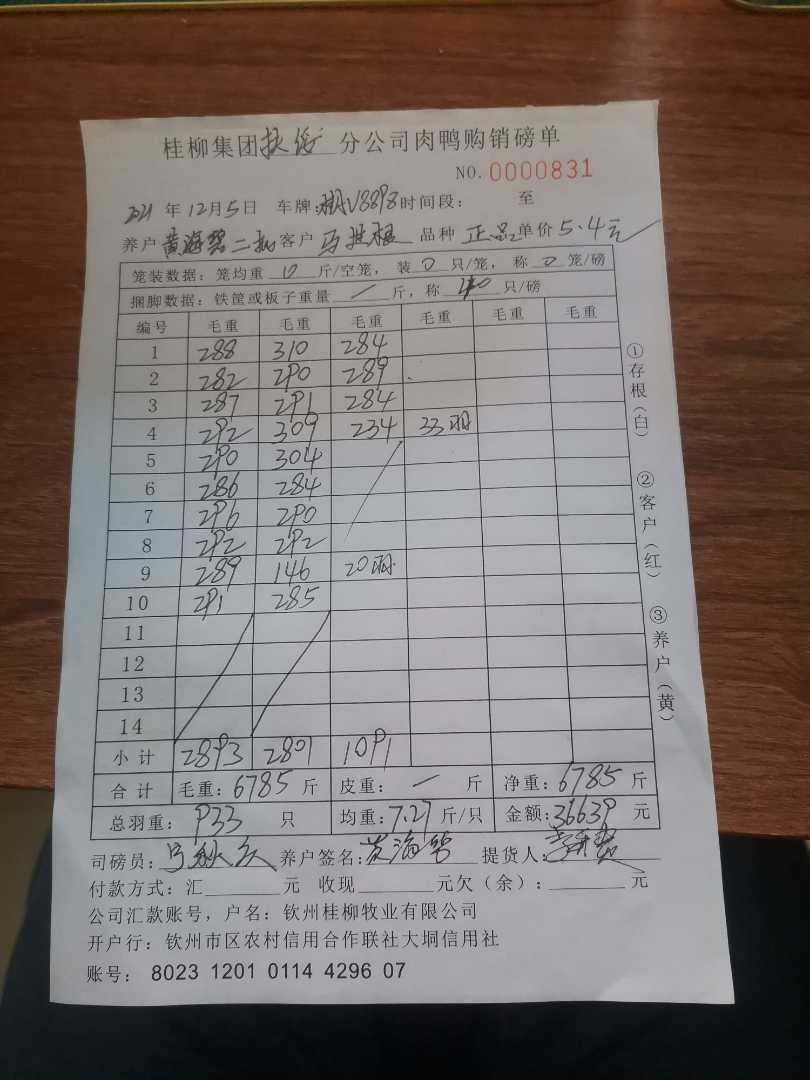 桂柳集团扶绥分公司肉鸭购销磅单
NO.0000831
2021年12月5日 车牌:湘V8898时间段: 至
养户黄海碧二批客户马世稳 品种 正品 单价5.4元
笼装数据:笼均重10斤/空笼,装0只/笼,称0笼/磅
捆脚数据:铁筐或板子重量/斤,称40只/磅
编号 毛重 毛重 毛重 毛重 毛重 毛重
1 288 310 284
2 282 290 289
3 287 291 284
4 292 309 234 33羽
5 290 304
6 286 284
7 296 290
8 292 292
9 289 146 20羽
10 291 285
11
12
13
14
小计 2893 2801 1091
合计 毛重:6785斤 皮重:/斤 净重:6785斤
总羽重:933只 均重:7.27斤/只 金额:36639元
司磅员: 养户签名:黄海碧 提货人:
付款方式:汇 元 收现 元欠(余): 元
公司汇款账号,户名:钦州桂柳牧业有限公司
开户行:钦州市区农村信用合作联社大垌信用社
账号:8023 1201 0114 4296 07
①存根(白)
②客户(红)
③养户(黄)